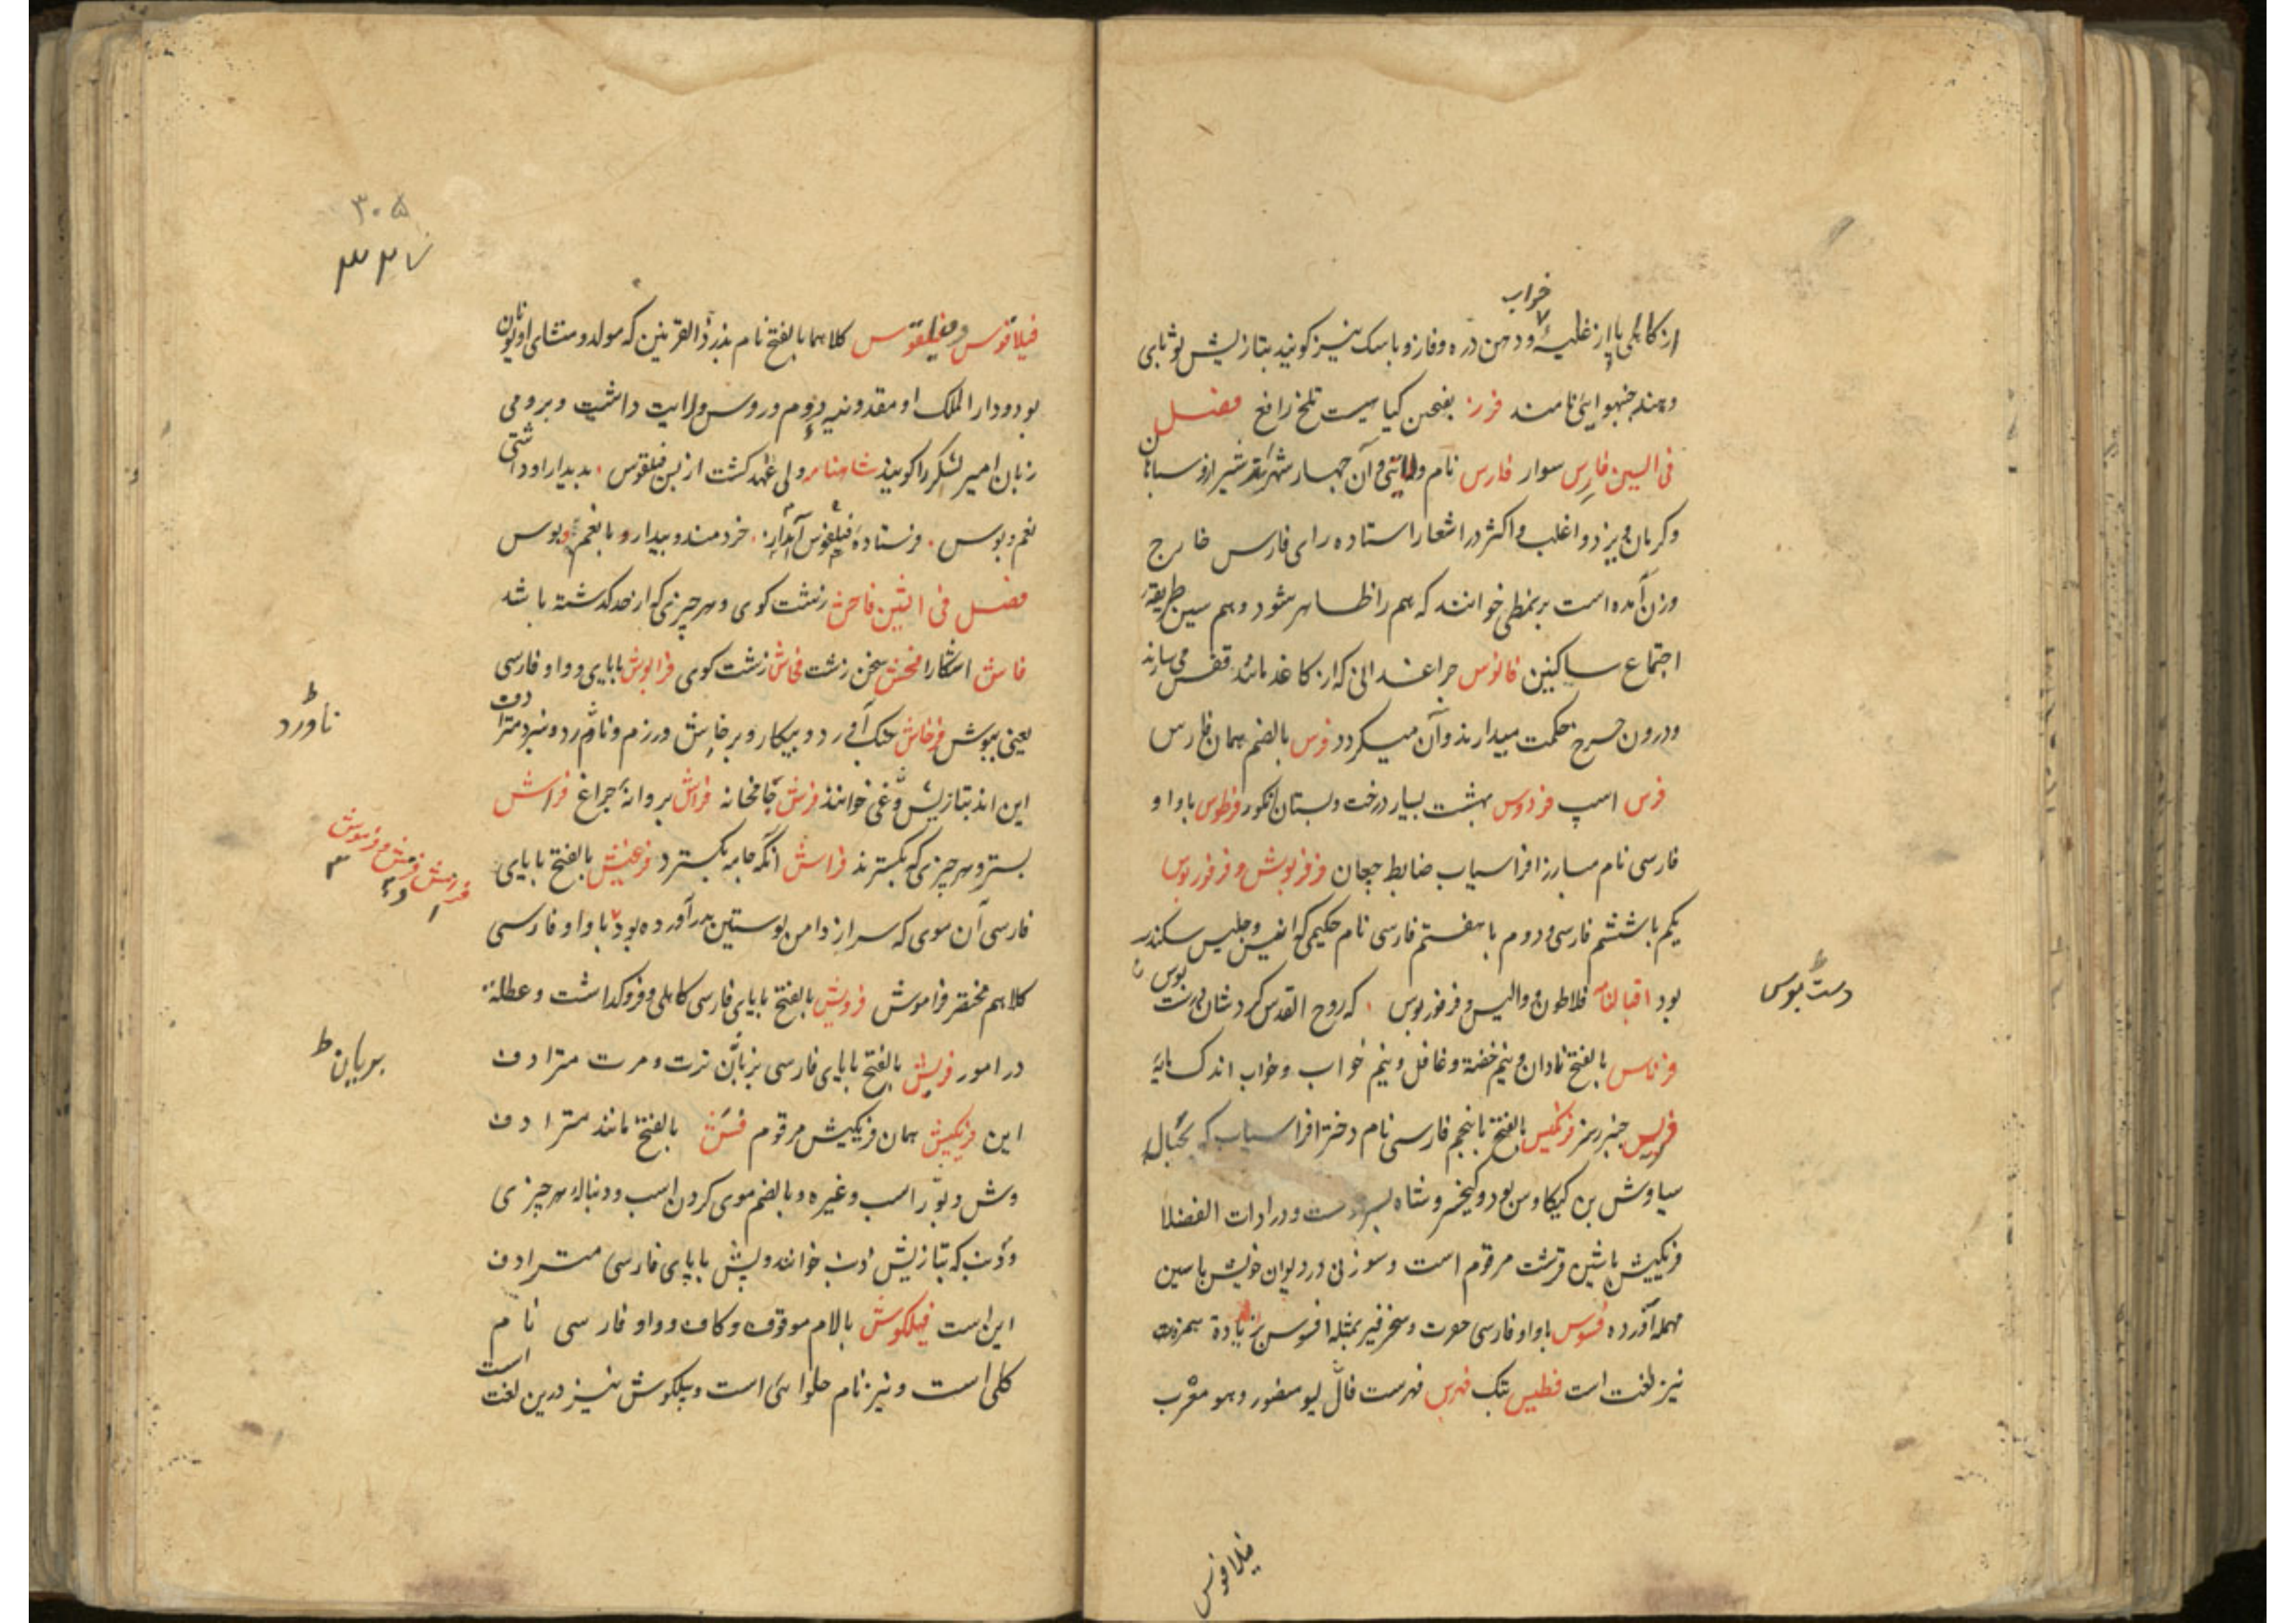 خواب
از کاهلی یا از غلبهٔ و دهن دره و فاژ و باسک نیز کویند بتازیش ثوبایی
و هند جنبهوایی نامند فرز بفتحین کیاهیست تلخ رافع فصل
فی السین فارس سوار فارس نام ولایتی و آن چهار شهر شیراز و سبانان
و کرمان و یزد و اغلب و اکثر در اشعار استاده رای فارس خارج
وزن آمده است بر نمطی خوانند که هم را ظاهر شود و هم سین طریقهٔ
اجتماع ساکنین فانوس چراغدانی که از کاغذ مانند قفس می سازند
و درون چرخ حکمت میدارند و آن میکردد فرس بالضم همان فارس
فرس اسپ فردوس بهشت بسیار درخت و بستان انکور فرطوس با واو
فارسی نام مبارز افراسیاب ضابط چغان فرفریوش و فرفوریوس
یکم با ششم فارسی و دوم با هفتم فارسی نام حکیمی که انیس و جلیس سکندر
بود اقبالنامه فلاطون و والیس و فرفوریوس که روح القدس کردشان دست بوس
دست بوس
فرناس بالفتح نادان و نیم خفته و غافل و نیم خواب و خواب اندک
فریس چنبر رمز فرنکیس بالفتح با پنجم فارسی نام دختر افراسیاب که بحباله
سیاوش بن کیکاوس بود و کیخسرو شاه پسر اوست و در ادات الفضلا
فرنکیش با شین قرشت مرقوم است و سوزنی در دیوان خویش با سین
مهمله آورده فسوس با واو فارسی حسرت و سخر فیر بمثله افسوس بزیادة همزه
نیز لغت است فطیس پتک فهرس فهرست قال لیو منصور و هو معرب
فیلاقوس
۳۰۵
۳۲۷
فیلاقوس و فیلقوس کلاهما بالفتح نام پدر ذوالقرنین که مولد و منشای او یونان
بود و دار الملک او مقدونیه و روم و روس ولایت داشت و برومی
زبان امیر لشکر را کویند شاهنامه ولی عهد کشت از پس فیلقوس بدیدار او داشتی
نعم و بوس فرستاده فیلقوس آمدار خردمند و بیدار و با نعم و بوس
فصل فی الشین فاحش زشت کوی و هر چیزی که از حد کذشته باشد
فاش اشکارا فحش سخن زشت فحاش زشت کوی فراپوش با بای و واو فارسی
یعنی بپوش فرخاش جنک آورد و پیکار و پرخاش و رزم و ناورد و نبرد مترادف
ناورد
این اند بتازیش وغی خوانند فرش جامخانه فراش پروانهٔ چراغ فراش
بستر و هر چیزی که بکسترند فراش آنکه جامه بکسترد فرغیش بالفتح با بای
فارسی آن موی که سر از دامن پوستین بدر آورده بود با واو فارسی
کلاهم مختصر فراموش فرویش بالفتح با بای فارسی کاهلی و فروکذاشت و عطله
در امور فریش بالفتح با بای فارسی بزبان ترت و مرت مترادف
بریان
این فرنکیش همان فرنکیش مرقوم فش بالفتح مانند مترادف
وش و پوز اسب و غیره و بالضم موی کردن اسب و دنباله هر چیزی
و ذنب که بتازیش ذنب خوانند و پش با پای فارسی مترادف
این است فیلکوش بالام موقوف و کاف و واو فارسی نام
کلی است و نیز نام حلوائی است و پیلکوش نیز درین لغت است